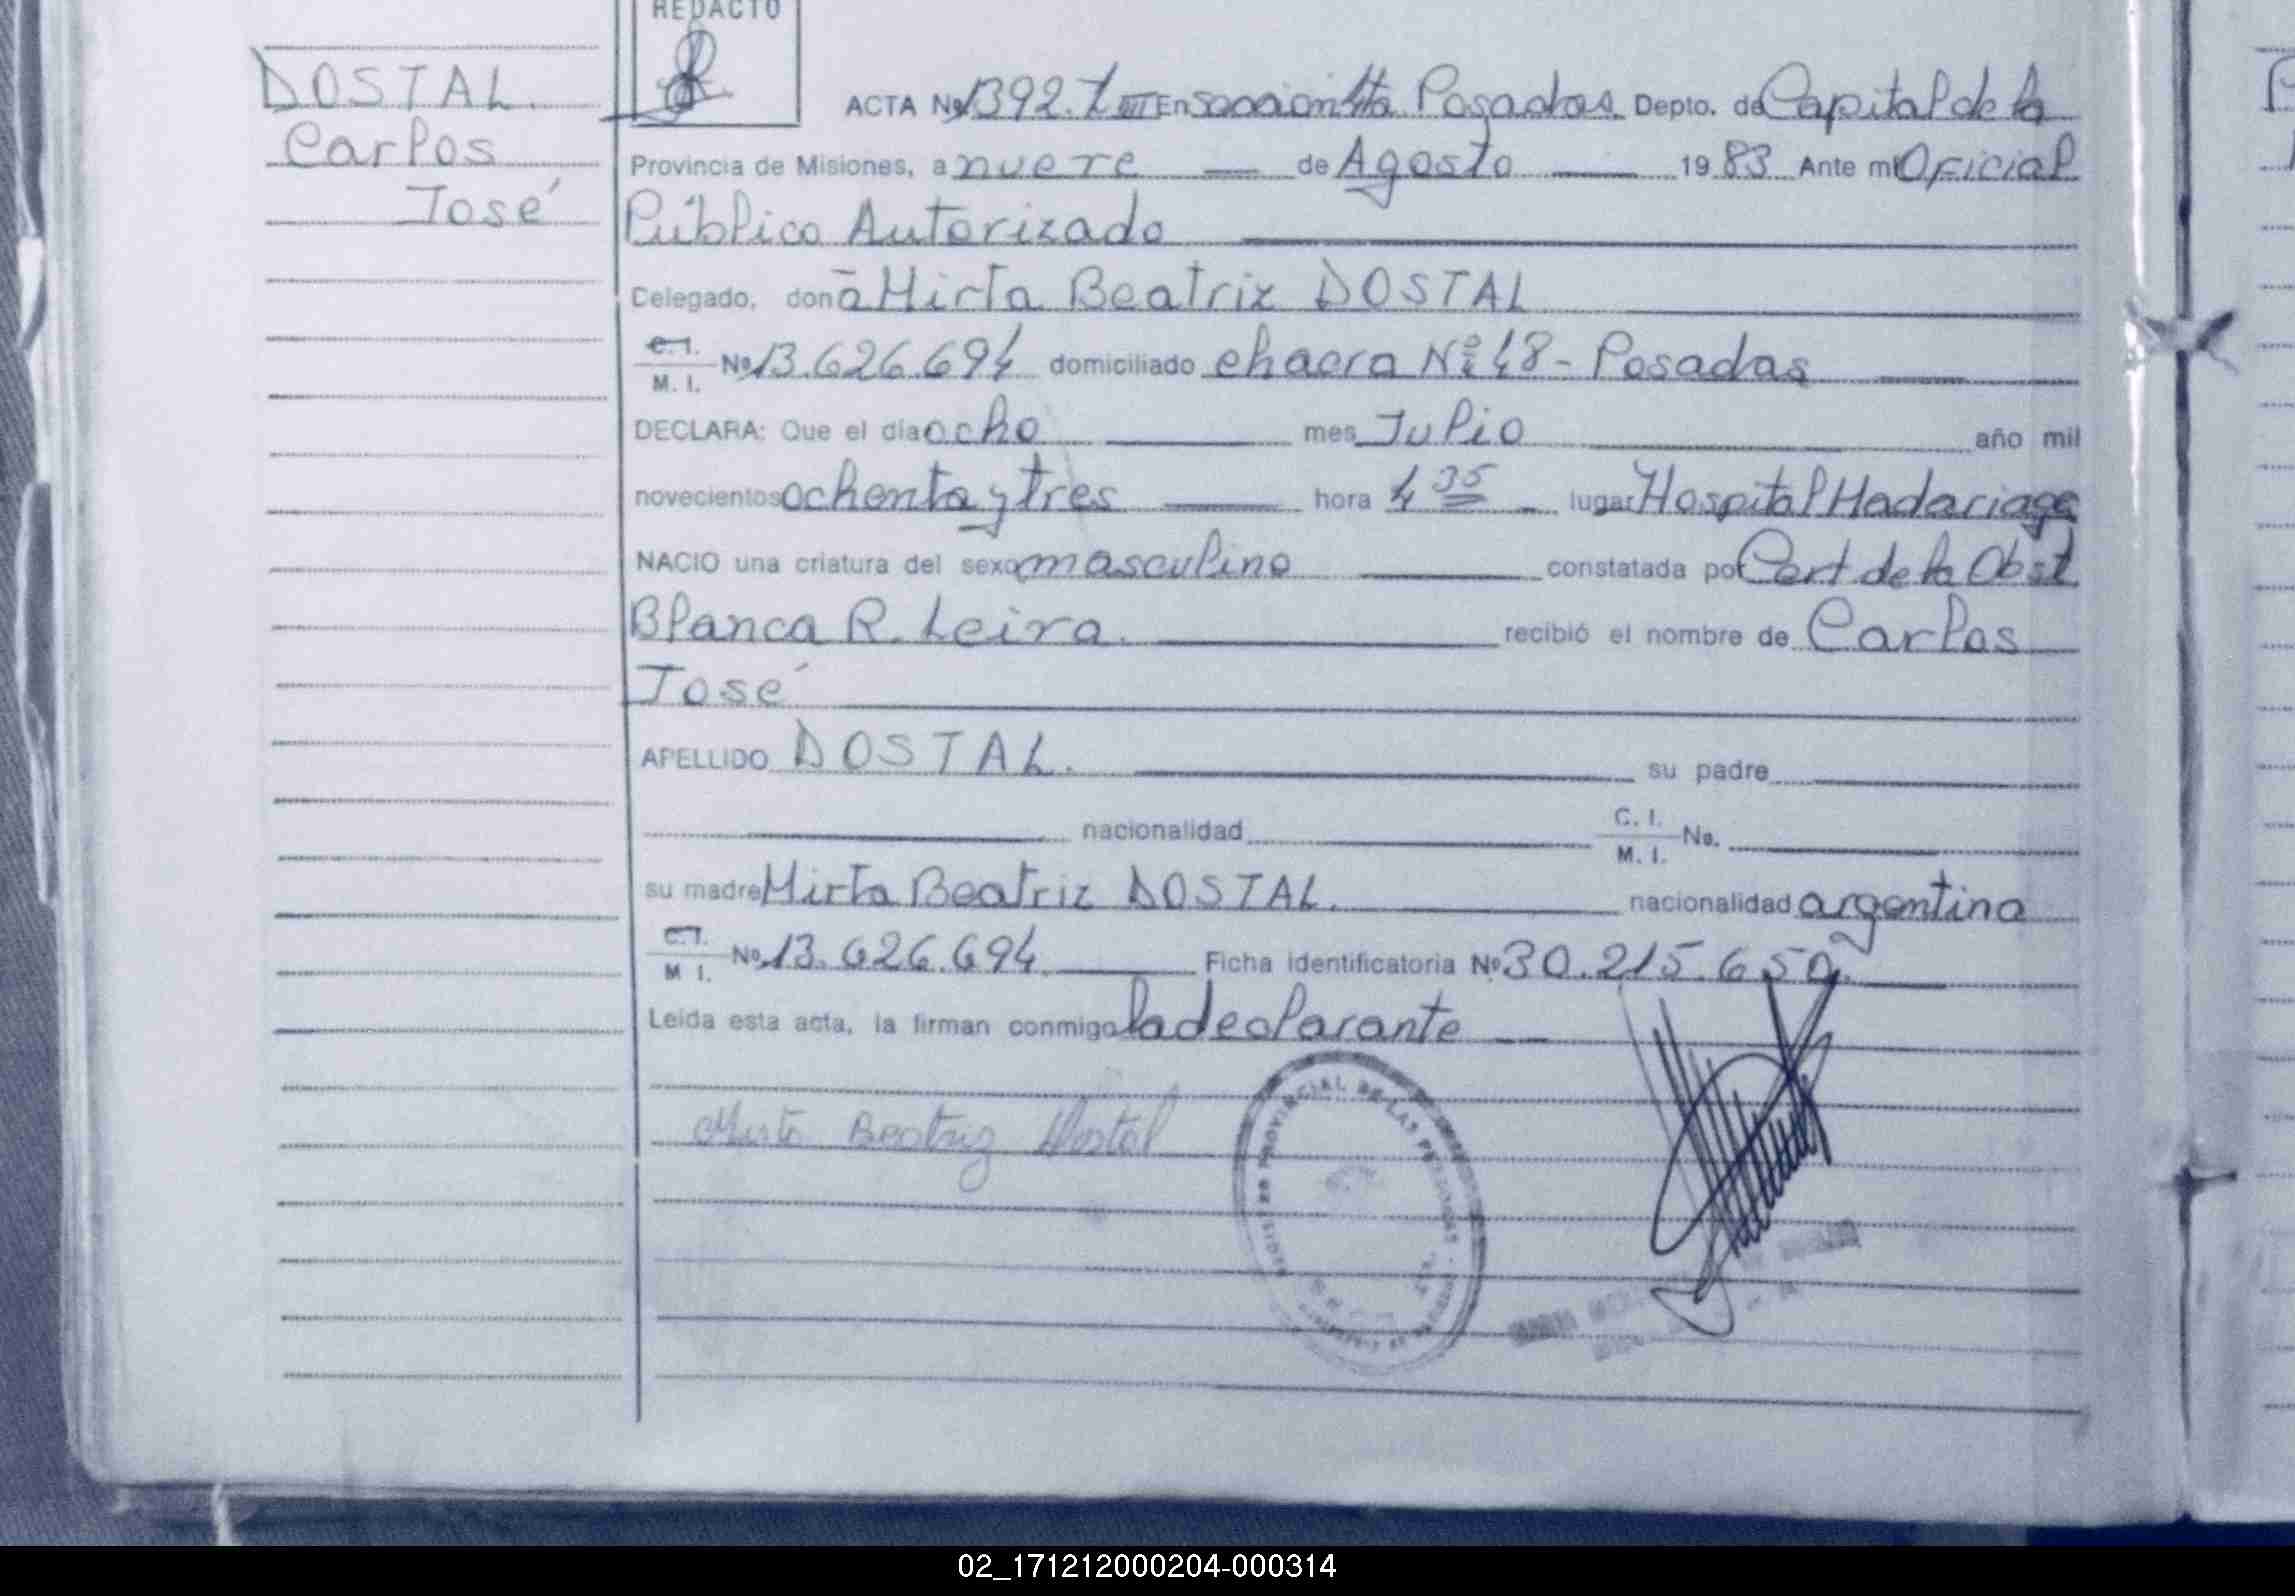 REDACTO
DOSTAL.
Carlos
José
ACTA No 1392. T III En sección 4ta Posadas. Depto. de Capital de la
Provincia de Misiones, a nueve de Agosto 19 83 Ante mi Oficial
Público Autorizado
Delegado, don ã Mirta Beatriz DOSTAL
C.I. M. I. No 13.626.694 domiciliado chacra Nº 48 - Posadas
DECLARA: Que el día ocho mes Julio año mil
novecientos ochenta y tres hora 4 35 lugar Hospital Madariaga
NACIO una criatura del sexo masculino constatada por Cert de la Obst
Blanca R. Leira. recibió el nombre de Carlos
José
APELLIDO DOSTAL. su padre
nacionalidad C. I. M. I. No.
su madre Mirta Beatriz DOSTAL. nacionalidad argentina
C.I. M I. No. 13.626.694 Ficha identificatoria No 30.215.650.
Leida esta acta, la firman conmigo la declarante
Mirta Beatriz Dostal
REGISTRO PROVINCIAL DE LAS PERSONAS
02_171212000204-000314